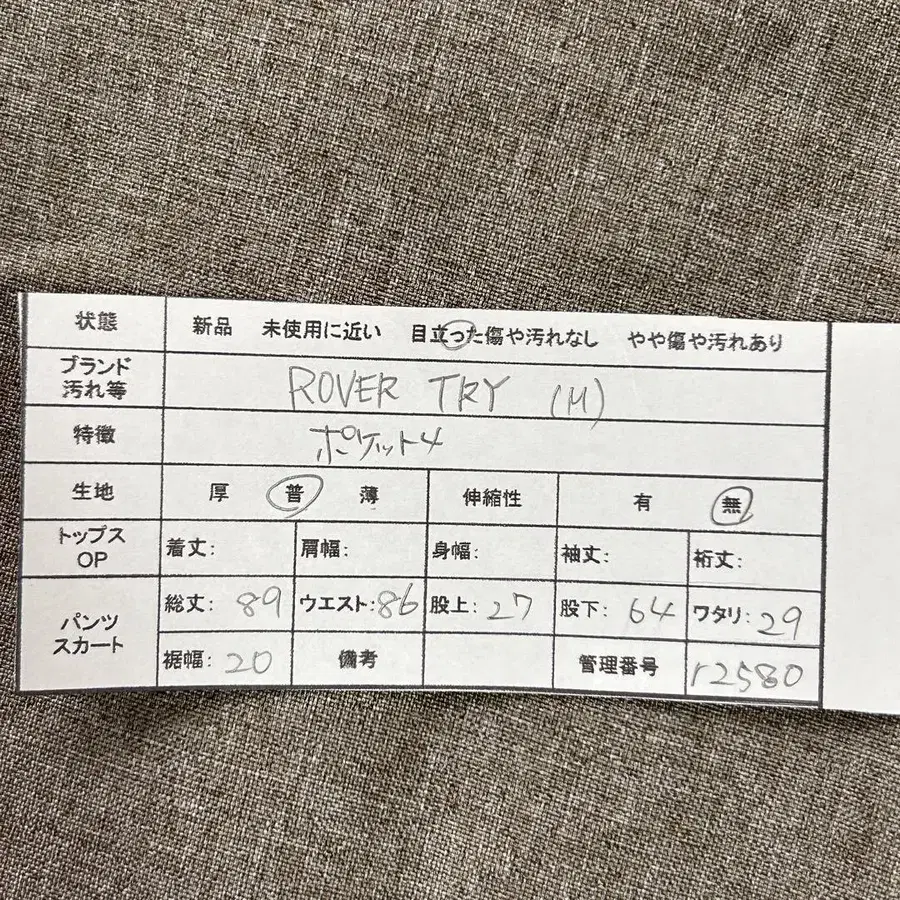 状態 新品 未使用に近い 目立った傷や汚れなし やや傷や汚れあり
ブランド
汚れ等 ROVER TRY (M)
特徴 ポケット4
生地 厚 普 薄 伸縮性 有 無
トップス
OP 着丈: 肩幅: 身幅: 袖丈: 裄丈:
パンツ
スカート 総丈: 89 ウエスト: 86 股上: 27 股下: 64 ワタリ: 29
裾幅: 20 備考 管理番号 r2580